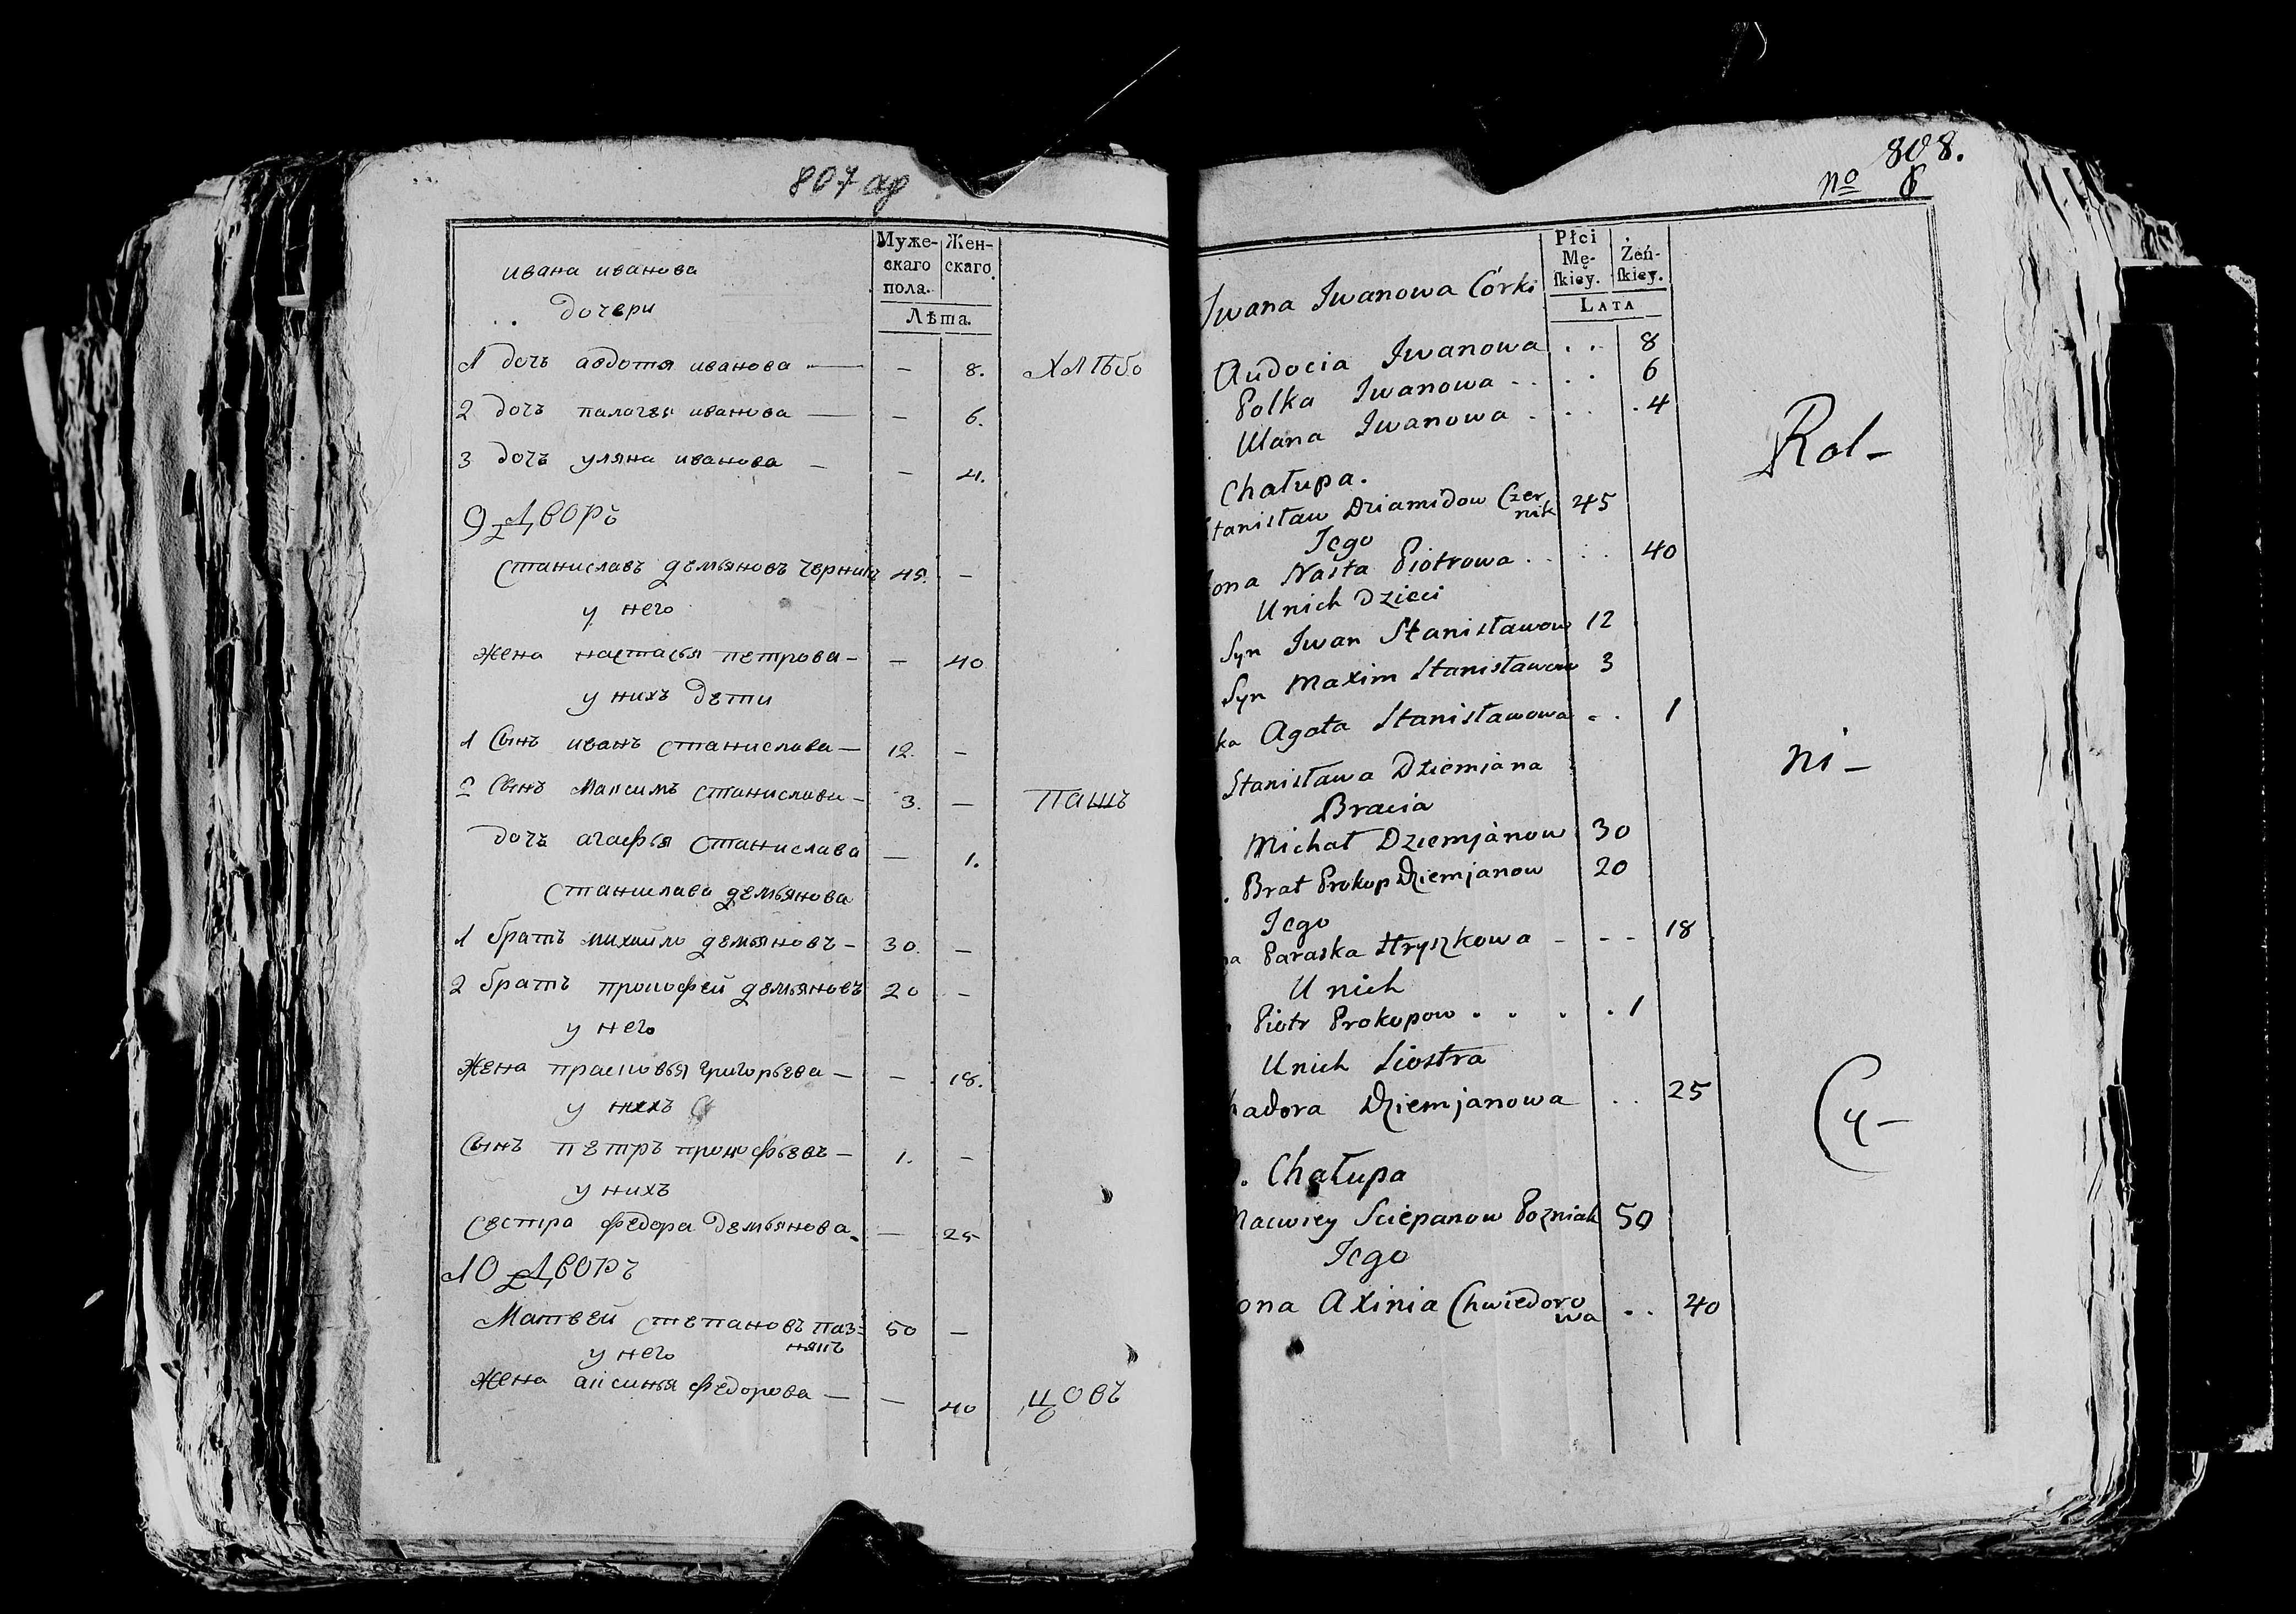 807 ар
Муже-
скаго
пола.
Жен-
скаго.
Лѣта.
ивана иванова
дочери
1 дочь авдотя иванова — — 8.
хлѣбо
2 дочь палагея иванова — — 6.
3 дочь уляна иванова — — 4.
9 Дворъ
Станиславъ демьяновъ черникъ 45. —
у него
жена настасья петрова — — 40
у нихъ дети
1 Сынъ иванъ станиславв — 12. —
2 Сынъ Максимъ станиславв — 3. —
пашъ
дочь агафья станислава — 1.
Станислава демьянова
1 братъ михайло демьяновъ — 30. —
2 братъ прокофей демьяновъ 20 —
у него
жена прасковья григорьева — — 18.
у нихъ
Сынъ петръ прокофьевъ — 1. —
у нихъ
сестра федора демьянова — 25
10 Дворъ
Матвей степановъ паз= 50 —
някъ
у него
жена аксинья федорова — — 40
цовъ
808.
no 6
Płci
Mę-
skiey.
Żeń-
skiey.
LATA
Iwana Iwanowa Córki
Audocia Iwanowa . . 8
Polka Iwanowa . . . . 6
Ulana Iwanowa . . . . 4
Rol-
Chałupa.
Stanisław Dziamidow Czer 45
nik
Jego
ona Nasta Piotrowa . . . . 40
Unich Dzieci
Syn Iwan Stanisławow 12
Syn Maxim Stanisławow 3
ka Agata Stanisławowa . . 1
ni-
Stanisława Dziemjana
Bracia
Michał Dziemjanow 30
. Brat Prokop Dziemjanow 20
Jego
na Paraska Hryszkowa - - - 18
U nich
Piotr Prokopow . . . . 1
Unich Siostra
hadora Dziemjanowa . . 25
Cy-
. Chałupa
Macwiey Sciepanow Pozniak 50
Jego
ona Axinia Chwiedoro . . 40
wa